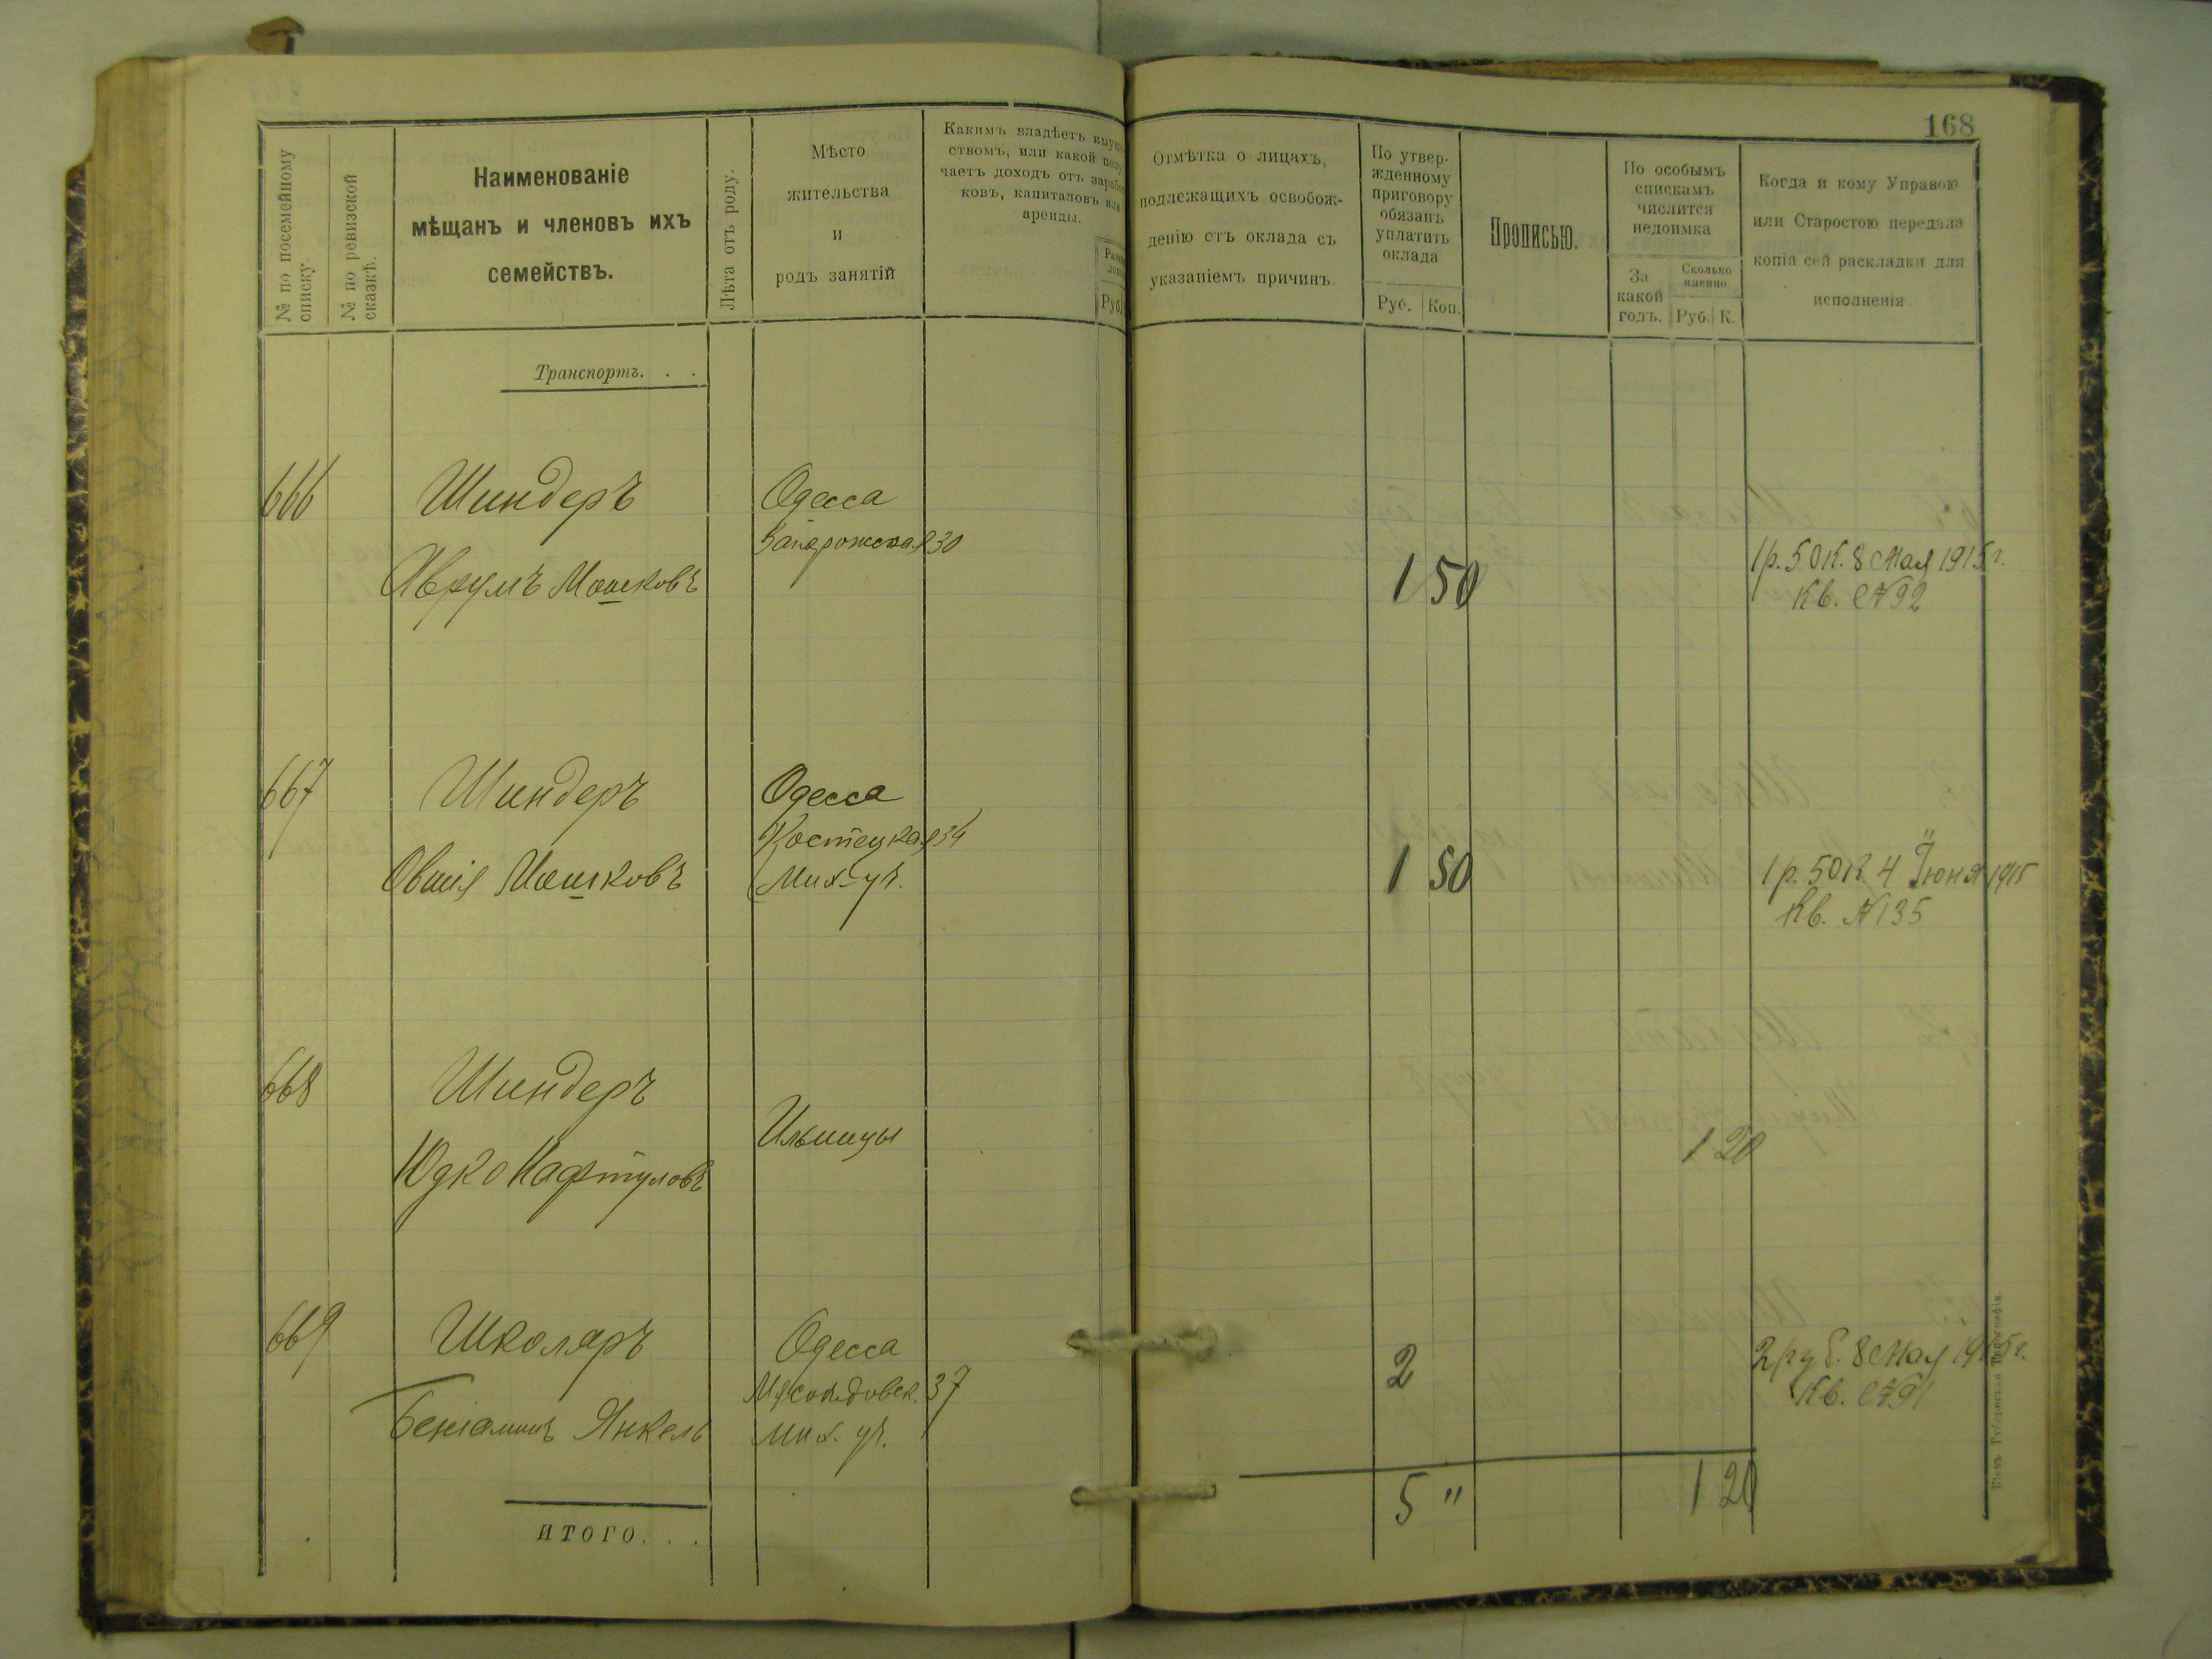 168
№ по посемейному
списку.
№ по ревизской
сказкѣ.
Наименованіе
мѣщанъ и членовъ ихъ
семействъ.
Лѣта отъ роду.
Мѣсто
жительства
и
родъ занятій
Какимъ владѣетъ имуще-
ствомъ, или какой полу-
чаетъ доходъ отъ заработ-
ковъ, капиталовъ или
аренды.
Руб.
Отмѣтка о лицахъ,
подлежащихъ освобож-
денію отъ оклада съ
указаніемъ причинъ.
По утвер-
жденному
приговору
обязанъ
уплатить
оклада
Руб. Коп.
Прописью.
По особымъ
спискамъ
числится
недоимка
За
какой
годъ.
Сколько
именно
Руб. К.
Когда и кому Управою
или Старостою передана
копія сей раскладки для
исполненія
Транспортъ. . .
666 Шиндеръ Одесса
Запорожская 30
Аврумъ Мошковъ 1 50
1 р. 50 к. 8 Мая 1915 г.
Кв. № 92
667 Шиндеръ Одесса
Костецкая 34
Овшія Мошковъ Мих. уч. 1 50
1 р. 50 к. 4 Іюня 1915
Кв. № 135
668 Шиндеръ
Ильинцы
Юдко Нафтуловъ 1 20
669 Школяръ Одесса
Мясоѣдовск. 37
Беніаминъ Янкель Мих. уч. 2
2 руб. 8 Мая 1915 г.
Кв. № 91
ИТОГО. . . 5 " 1 20
Кіевъ Губернская Типографія.